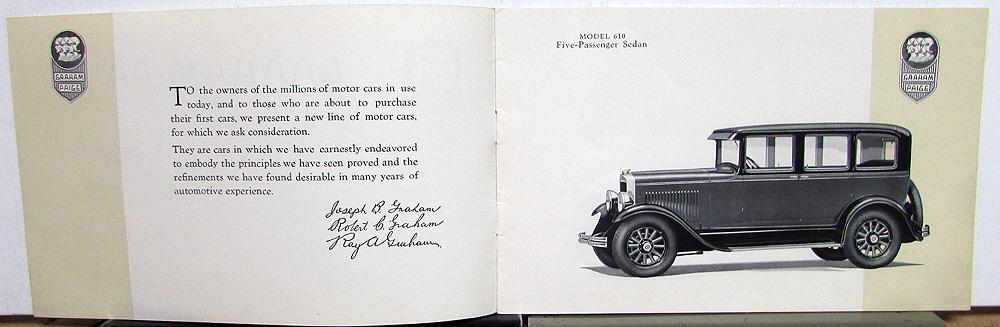 GRAHAM
PAIGE
TO the owners of the millions of motor cars in use
today, and to those who are about to purchase
their first cars, we present a new line of motor cars,
for which we ask consideration.
They are cars in which we have earnestly endeavored
to embody the principles we have seen proved and the
refinements we have found desirable in many years of
automotive experience.
Joseph B. Graham
Robert C. Graham
Ray A Graham
MODEL 610
Five-Passenger Sedan
GRAHAM
PAIGE